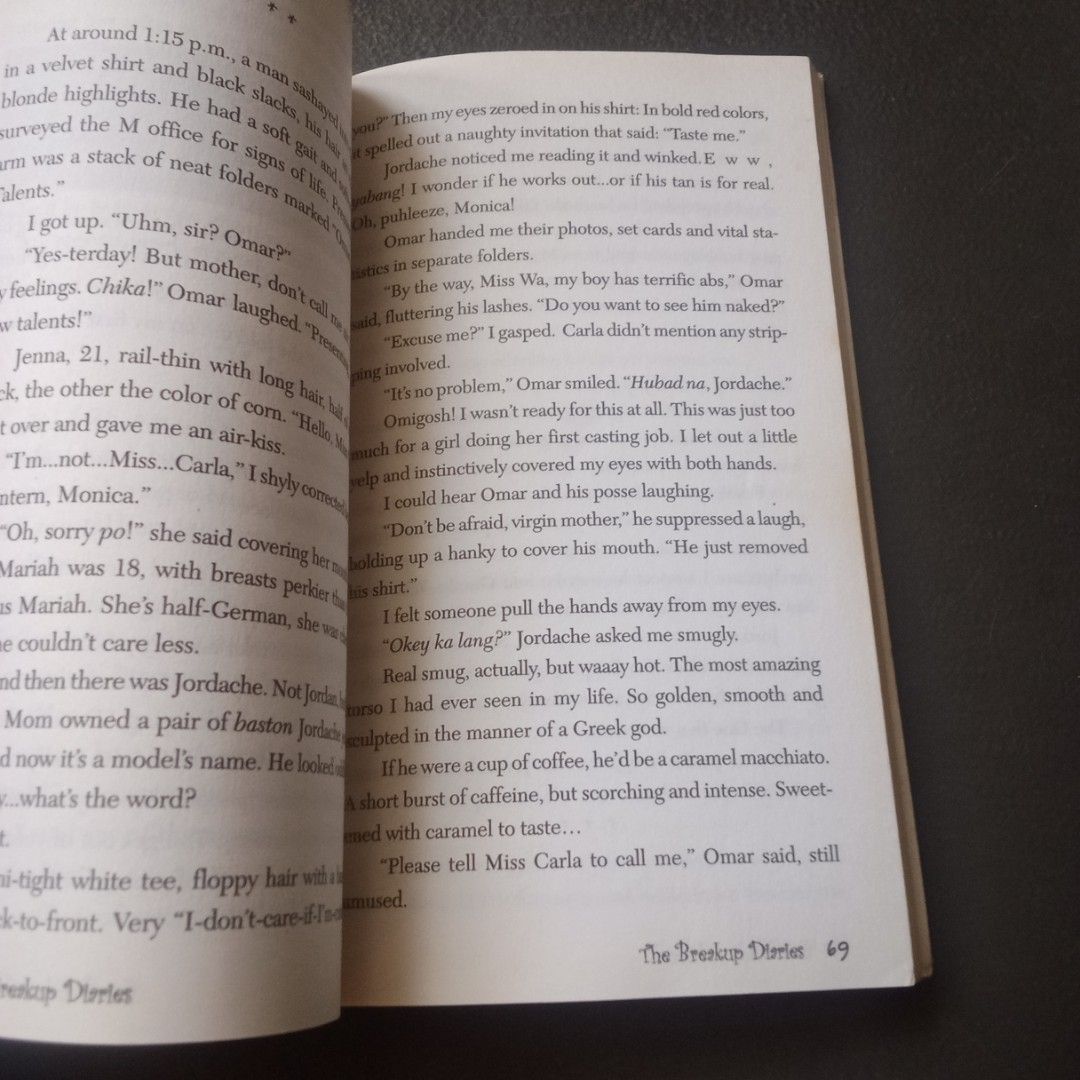 * *
At around 1:15 p.m., a man sashayed
in a velvet shirt and black slacks, his hair
blonde highlights. He had a soft gait and
surveyed the M office for signs of life.
arm was a stack of neat folders marked
Talents.”
I got up. “Uhm, sir? Omar?”
“Yes-terday! But mother, don’t call me
y feelings. Chika!” Omar laughed. “Presenting,
w talents!”
Jenna, 21, rail-thin with long hair, half
ck, the other the color of corn. “Hello,
t over and gave me an air-kiss.
“I’m...not...Miss...Carla,” I shyly corrected
ntern, Monica.”
“Oh, sorry po!” she said covering her
Mariah was 18, with breasts perkier than
us Mariah. She’s half-German, she was
he couldn’t care less.
nd then there was Jordache. Not Jordan,
Mom owned a pair of baston Jordache
d now it’s a model’s name. He looked
y...what’s the word?
t.
mi-tight white tee, floppy hair with a
ck-to-front. Very “I-don’t-care-if-I’m-
reakup Diaries
you?” Then my eyes zeroed in on his shirt: In bold red colors,
it spelled out a naughty invitation that said: “Taste me.”
Jordache noticed me reading it and winked. E w w ,
yabang! I wonder if he works out...or if his tan is for real.
Oh, puhleeze, Monica!
Omar handed me their photos, set cards and vital sta-
tistics in separate folders.
“By the way, Miss Wa, my boy has terrific abs,” Omar
said, fluttering his lashes. “Do you want to see him naked?”
“Excuse me?” I gasped. Carla didn’t mention any strip-
ping involved.
“It’s no problem,” Omar smiled. “Hubad na, Jordache.”
Omigosh! I wasn’t ready for this at all. This was just too
much for a girl doing her first casting job. I let out a little
yelp and instinctively covered my eyes with both hands.
I could hear Omar and his posse laughing.
“Don’t be afraid, virgin mother,” he suppressed a laugh,
holding up a hanky to cover his mouth. “He just removed
his shirt.”
I felt someone pull the hands away from my eyes.
“Okey ka lang?” Jordache asked me smugly.
Real smug, actually, but waaay hot. The most amazing
torso I had ever seen in my life. So golden, smooth and
sculpted in the manner of a Greek god.
If he were a cup of coffee, he’d be a caramel macchiato.
A short burst of caffeine, but scorching and intense. Sweet-
ened with caramel to taste…
“Please tell Miss Carla to call me,” Omar said, still
amused.
The Breakup Diaries 69